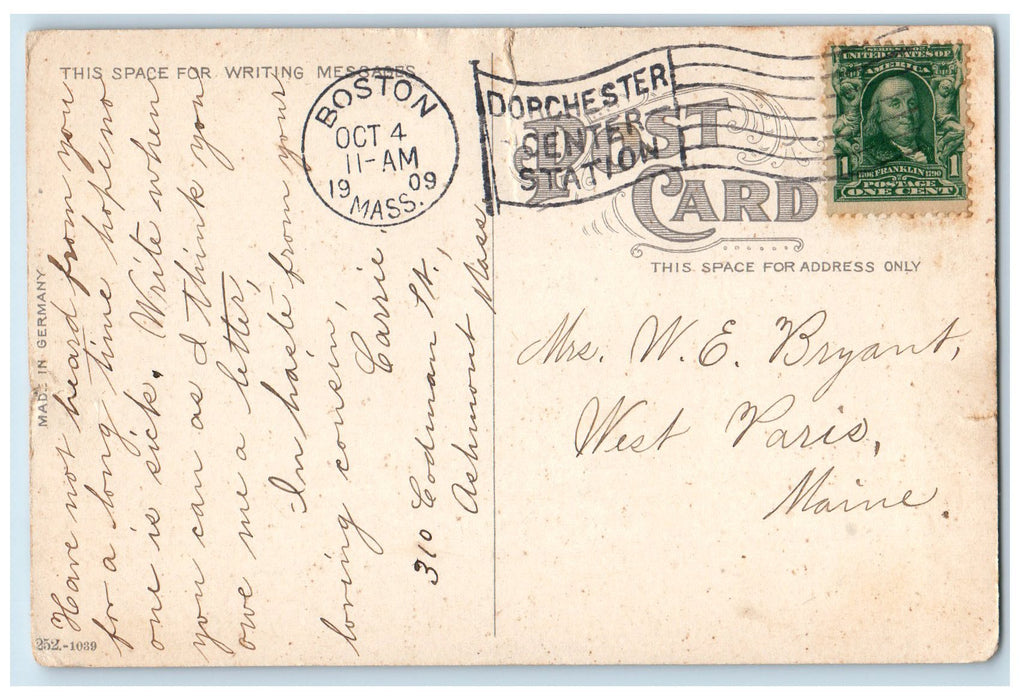 THIS SPACE FOR WRITING MESSAGES
BOSTON
OCT 4
11-AM
19 09
MASS.
DORCHESTER
CENTER
STATION
POST
CARD
SERIES OF 1902
UNITED STATES OF
AMERICA
1 1
1706 FRANKLIN 1790
POSTAGE
ONE CENT
THIS SPACE FOR ADDRESS ONLY
Have not heard from you
for a long time hope no
one is sick. Write when
you can as I think you
owe me a letter,
In haste from your
loving cousin,
Carrie,
310 Codman St.,
Ashmont Mass
Mrs. W. E. Bryant,
West Paris,
Maine.
MADE IN GERMANY
252.-1039